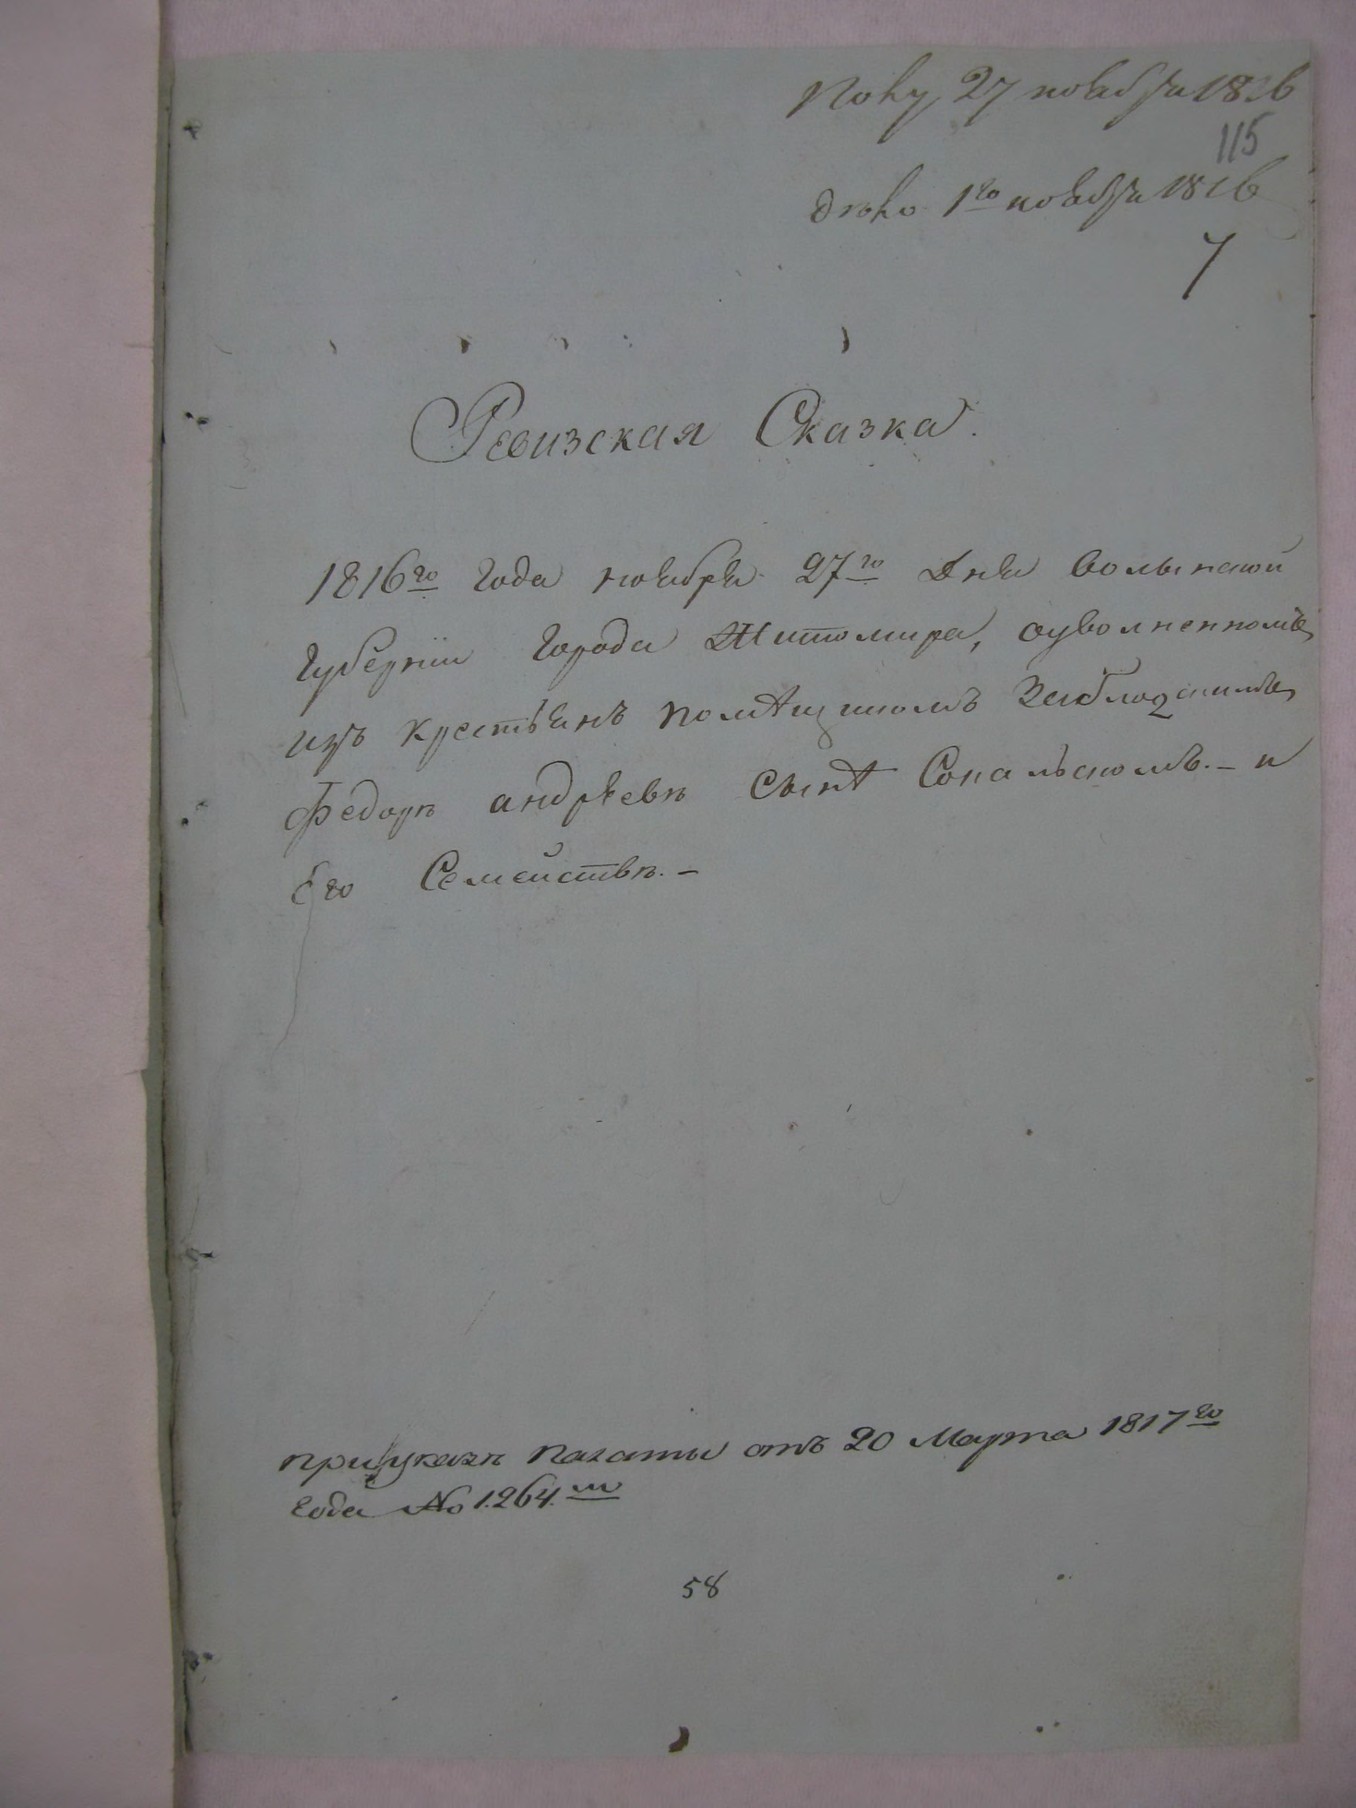 27 ноября 1816
115
1го ноября 1816
7
Ревизская Сказка.
1816го года ноября 27го Дня волынской
губернии города Житомира, оуволненномъ
изъ крестьянъ помѣщикомъ
Федорѣ андрѣевѣ сынѣ Сокальскомъ. - и
Его Семействѣ. -
при указѣ палаты отъ 20 Марта 1817го
года No 1.264.
58